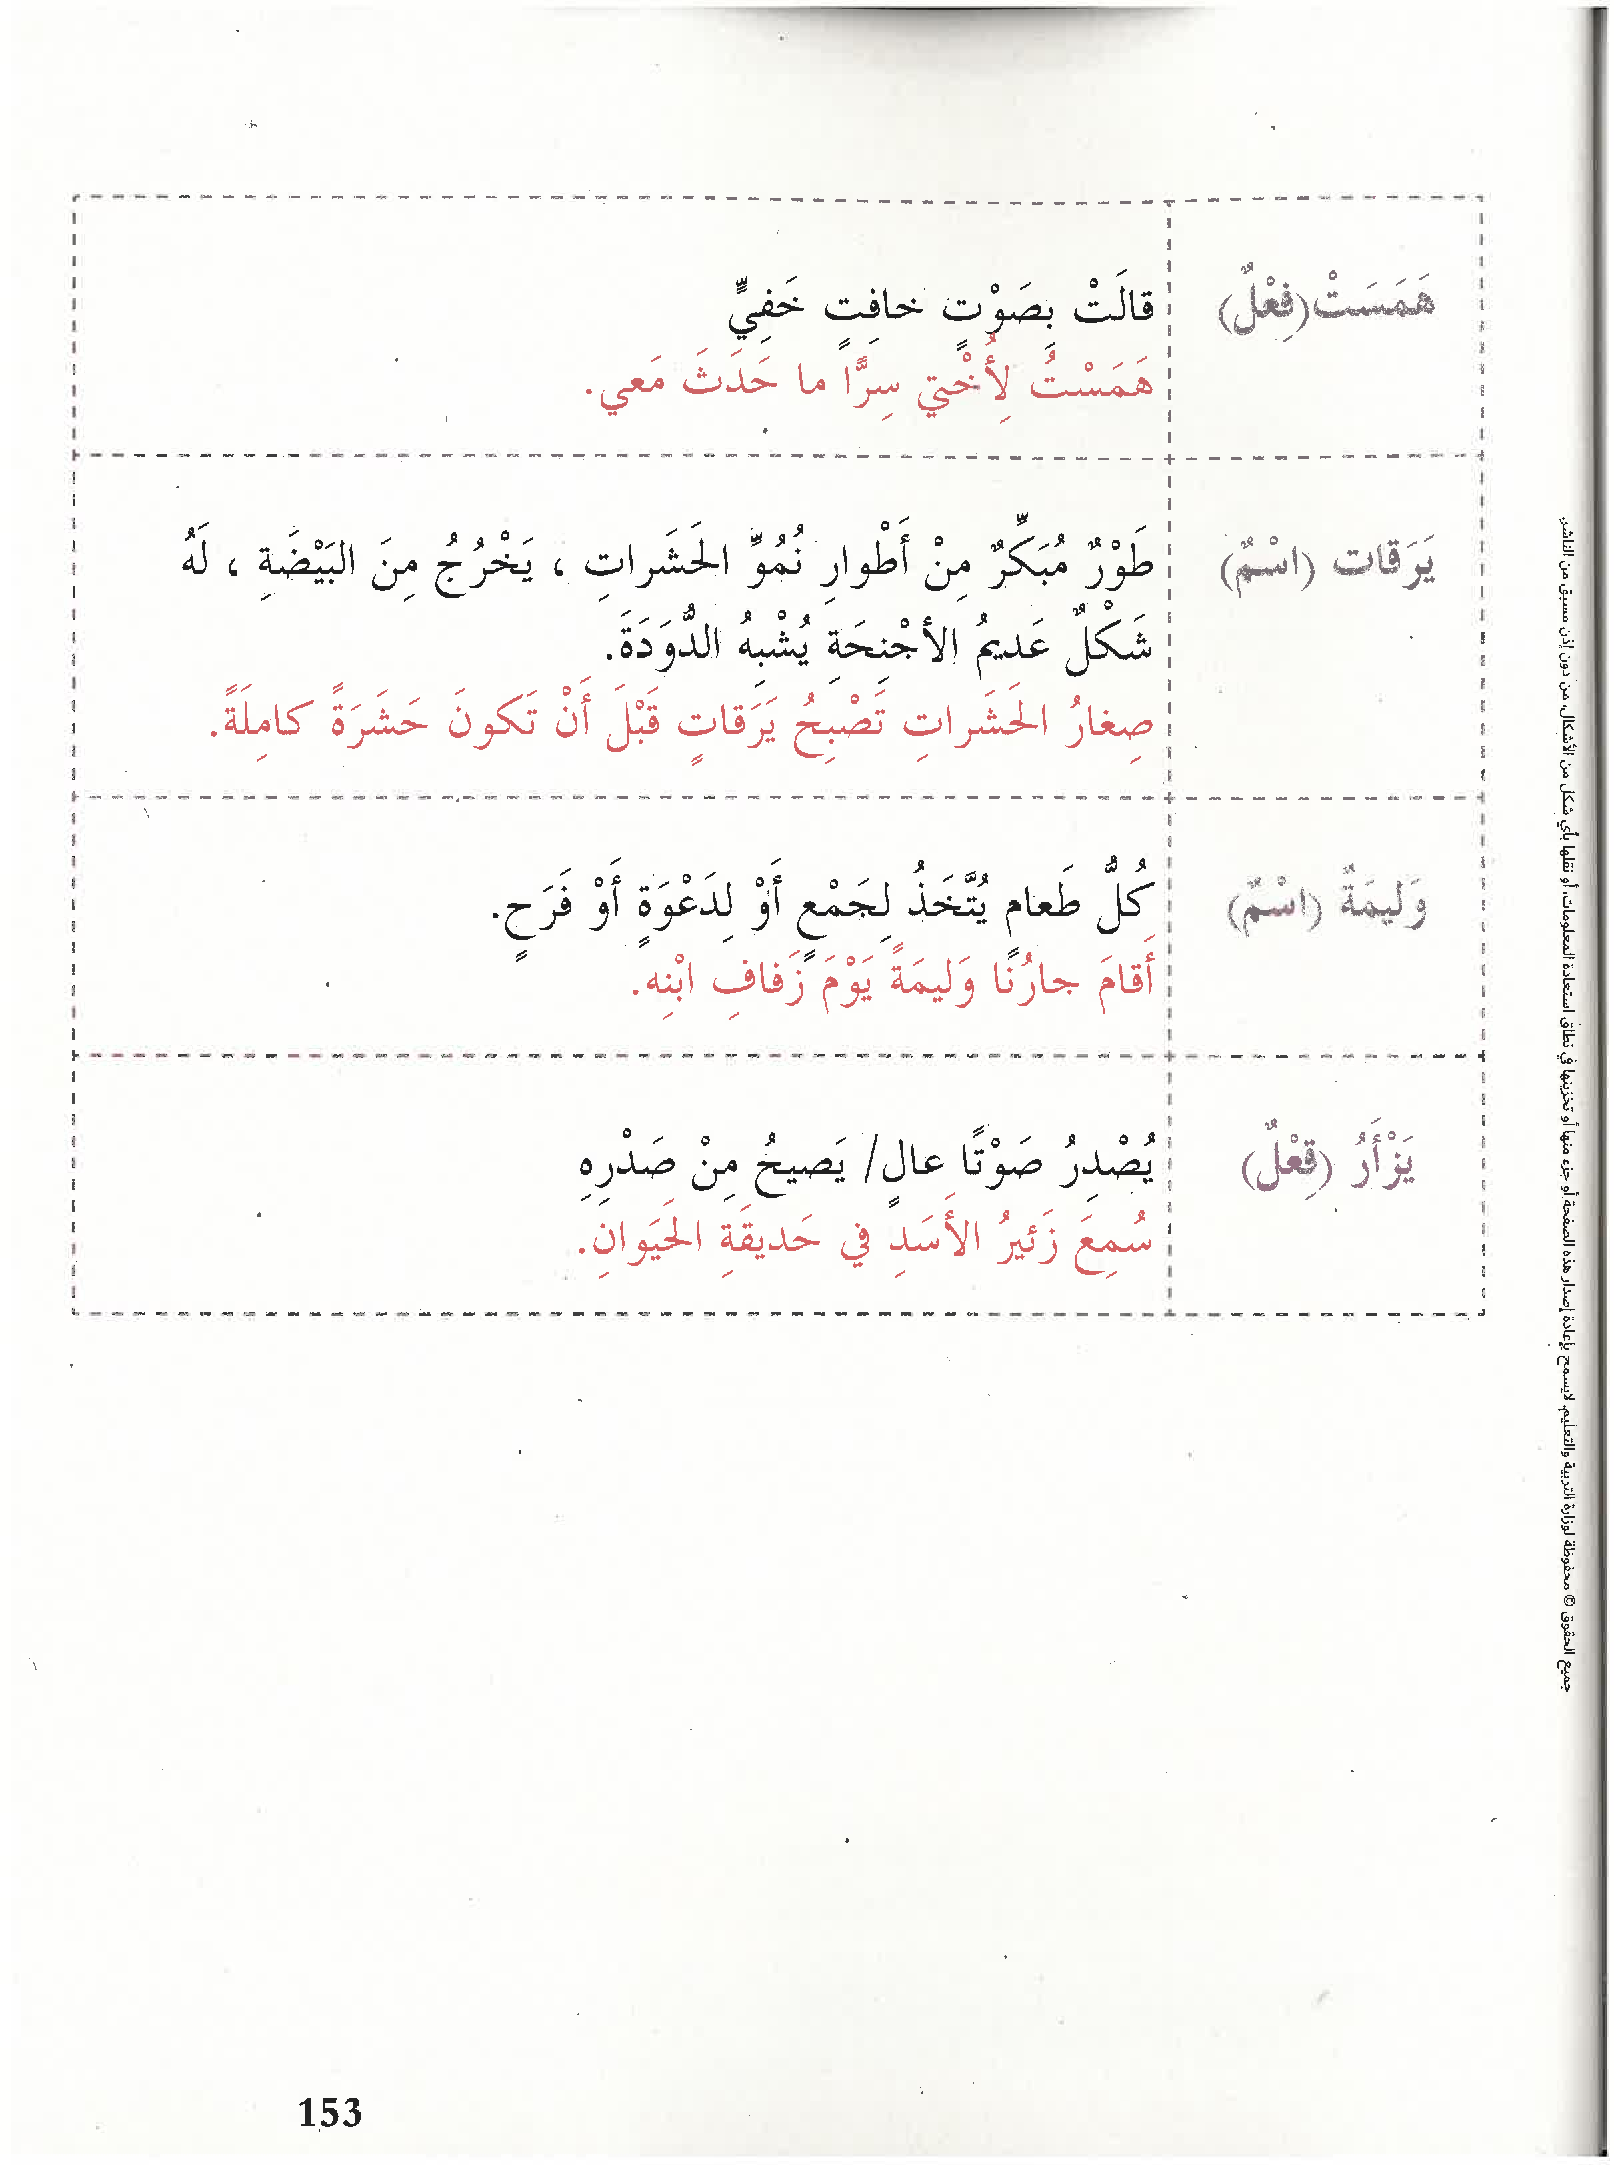 هَمَسَتْ (فِعْلٌ)
قالَتْ بِصَوْتٍ خافِتٍ خَفِيٍّ
هَمَسْتُ لِأُخْتي سِرًّا ما حَدَثَ مَعي.
يَرَقات (اسْمٌ)
طَوْرٌ مُبَكِّرٌ مِنْ أَطْوارِ نُمُوِّ الحَشَراتِ ، يَخْرُجُ مِنَ البَيْضَةِ ، لَهُ
شَكْلٌ عَديمُ الأجْنِحَةِ يُشْبِهُ الدُّوَدَةَ.
صِغارُ الحَشَراتِ تَصْبِحُ يَرَقاتٍ قَبْلَ أَنْ تَكونَ حَشَرَةً كامِلَةً.
وَليمَةٌ (اسْمٌ)
كُلُّ طَعام يُتَّخَذُ لِجَمْعٍ أَوْ لِدَعْوَةٍ أَوْ فَرَحٍ.
أَقامَ جارُنا وَليمَةً يَوْمَ زَفافِ ابْنِه.
يَزْأَرُ (فِعْلٌ)
يُصْدِرُ صَوْتًا عالٍ/ يَصيحُ مِنْ صَدْرِهِ
سُمِعَ زَئيرُ الأَسَدِ في حَديقَةِ الحَيَوانِ.
جميع الحقوق © محفوظة لوزارة التربية والتعليم. لايسمح بإعادة إصدار هذه الصفحة أو جزء منها أو تخزينها في نطاق استعادة المعلومات، أو نقلها بأي شكل من الأشكال، من دون إذن مسبق من الناشر.
153